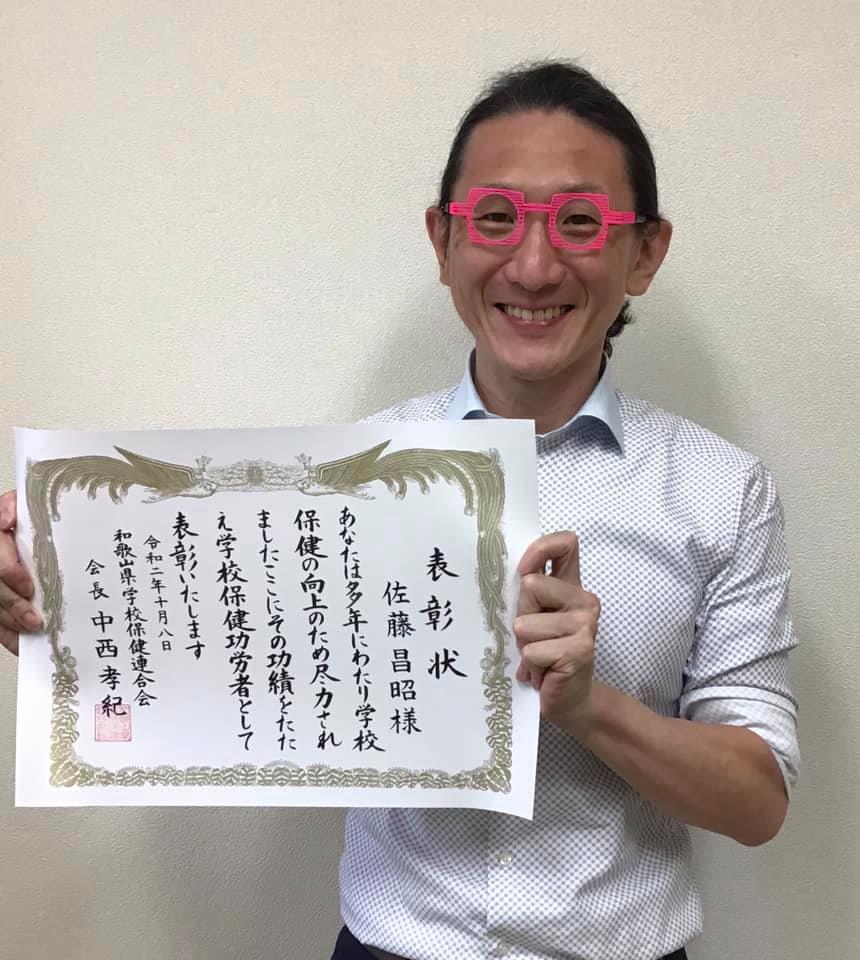 表彰状
佐藤昌昭様
あなたは多年にわたり学校
保健の向上のため尽力され
ましたここにその功績をたた
え学校保健功労者として
表彰いたします
令和二年十月八日
和歌山県学校保健連合会
会長 中西孝紀